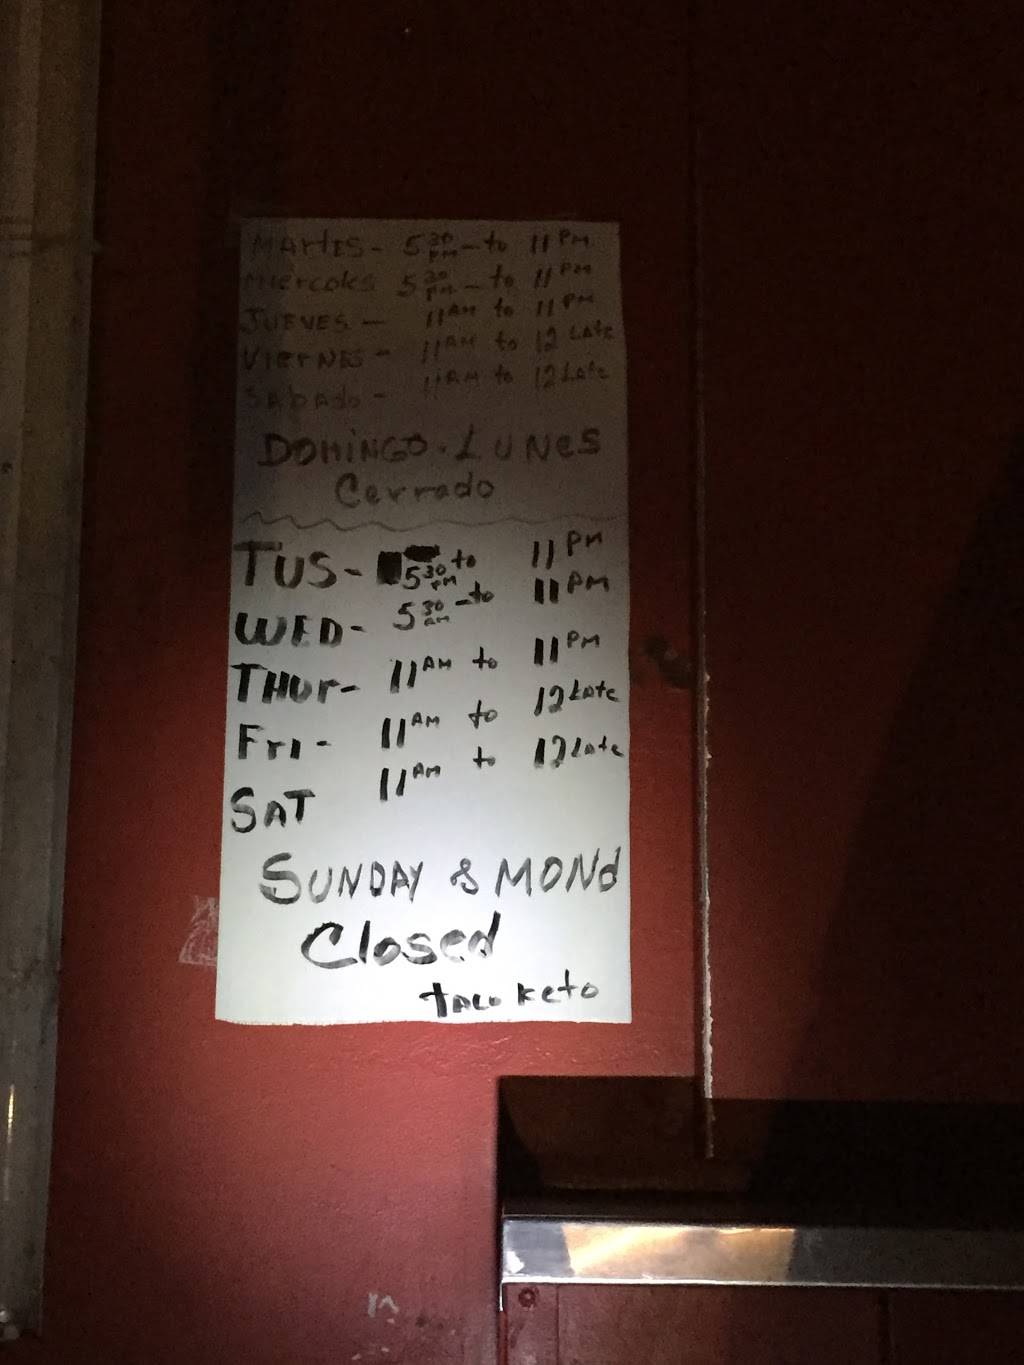 MARTES - 5 30 PM - to 11 PM
Miercoles 5 30 PM - to 11 PM
JUEVES - 11 AM to 11 PM
VierNES - 11 AM to 12 Late
Sabado - 11 AM to 12 Late
DOMiNGO - LUNes
Cerrado
TUS - 5 30 PM to 11 PM
WED - 5 30 AM - to 11 PM
THUr - 11 AM to 11 PM
Fri - 11 AM to 12 Late
SAT 11 AM to 12 Late
SUNDAY & MONd
Closed
taco Keto